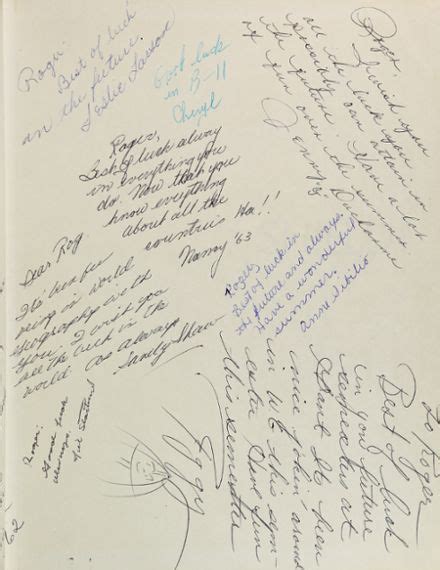 Roger:
Best of luck
in the future.
Leslie Larson
Good luck
in B-11
Cheryl
Roger,
I wish you
all the luck you
can attain in
the future. Have a lot
of fun over the summer
Jenny
Roger,
Best of luck always
in everything you
do. Now that you
know everything
about all the
countries Ha!!
Nancy '63
Dear Rog,
It's been fun
being in world
geography with
you. I wish you
all the luck in the
world as always
Sandy Shaw
Roger,
Best of luck in
the future and always.
Have a wonderful
summer.
Anne
Roger:
Good luck
always.
To Roger
Best of luck
in your future
at
It's been
nice jokin' around
in W.G. this sem-
ester. Have fun
this semester
Peggy
62